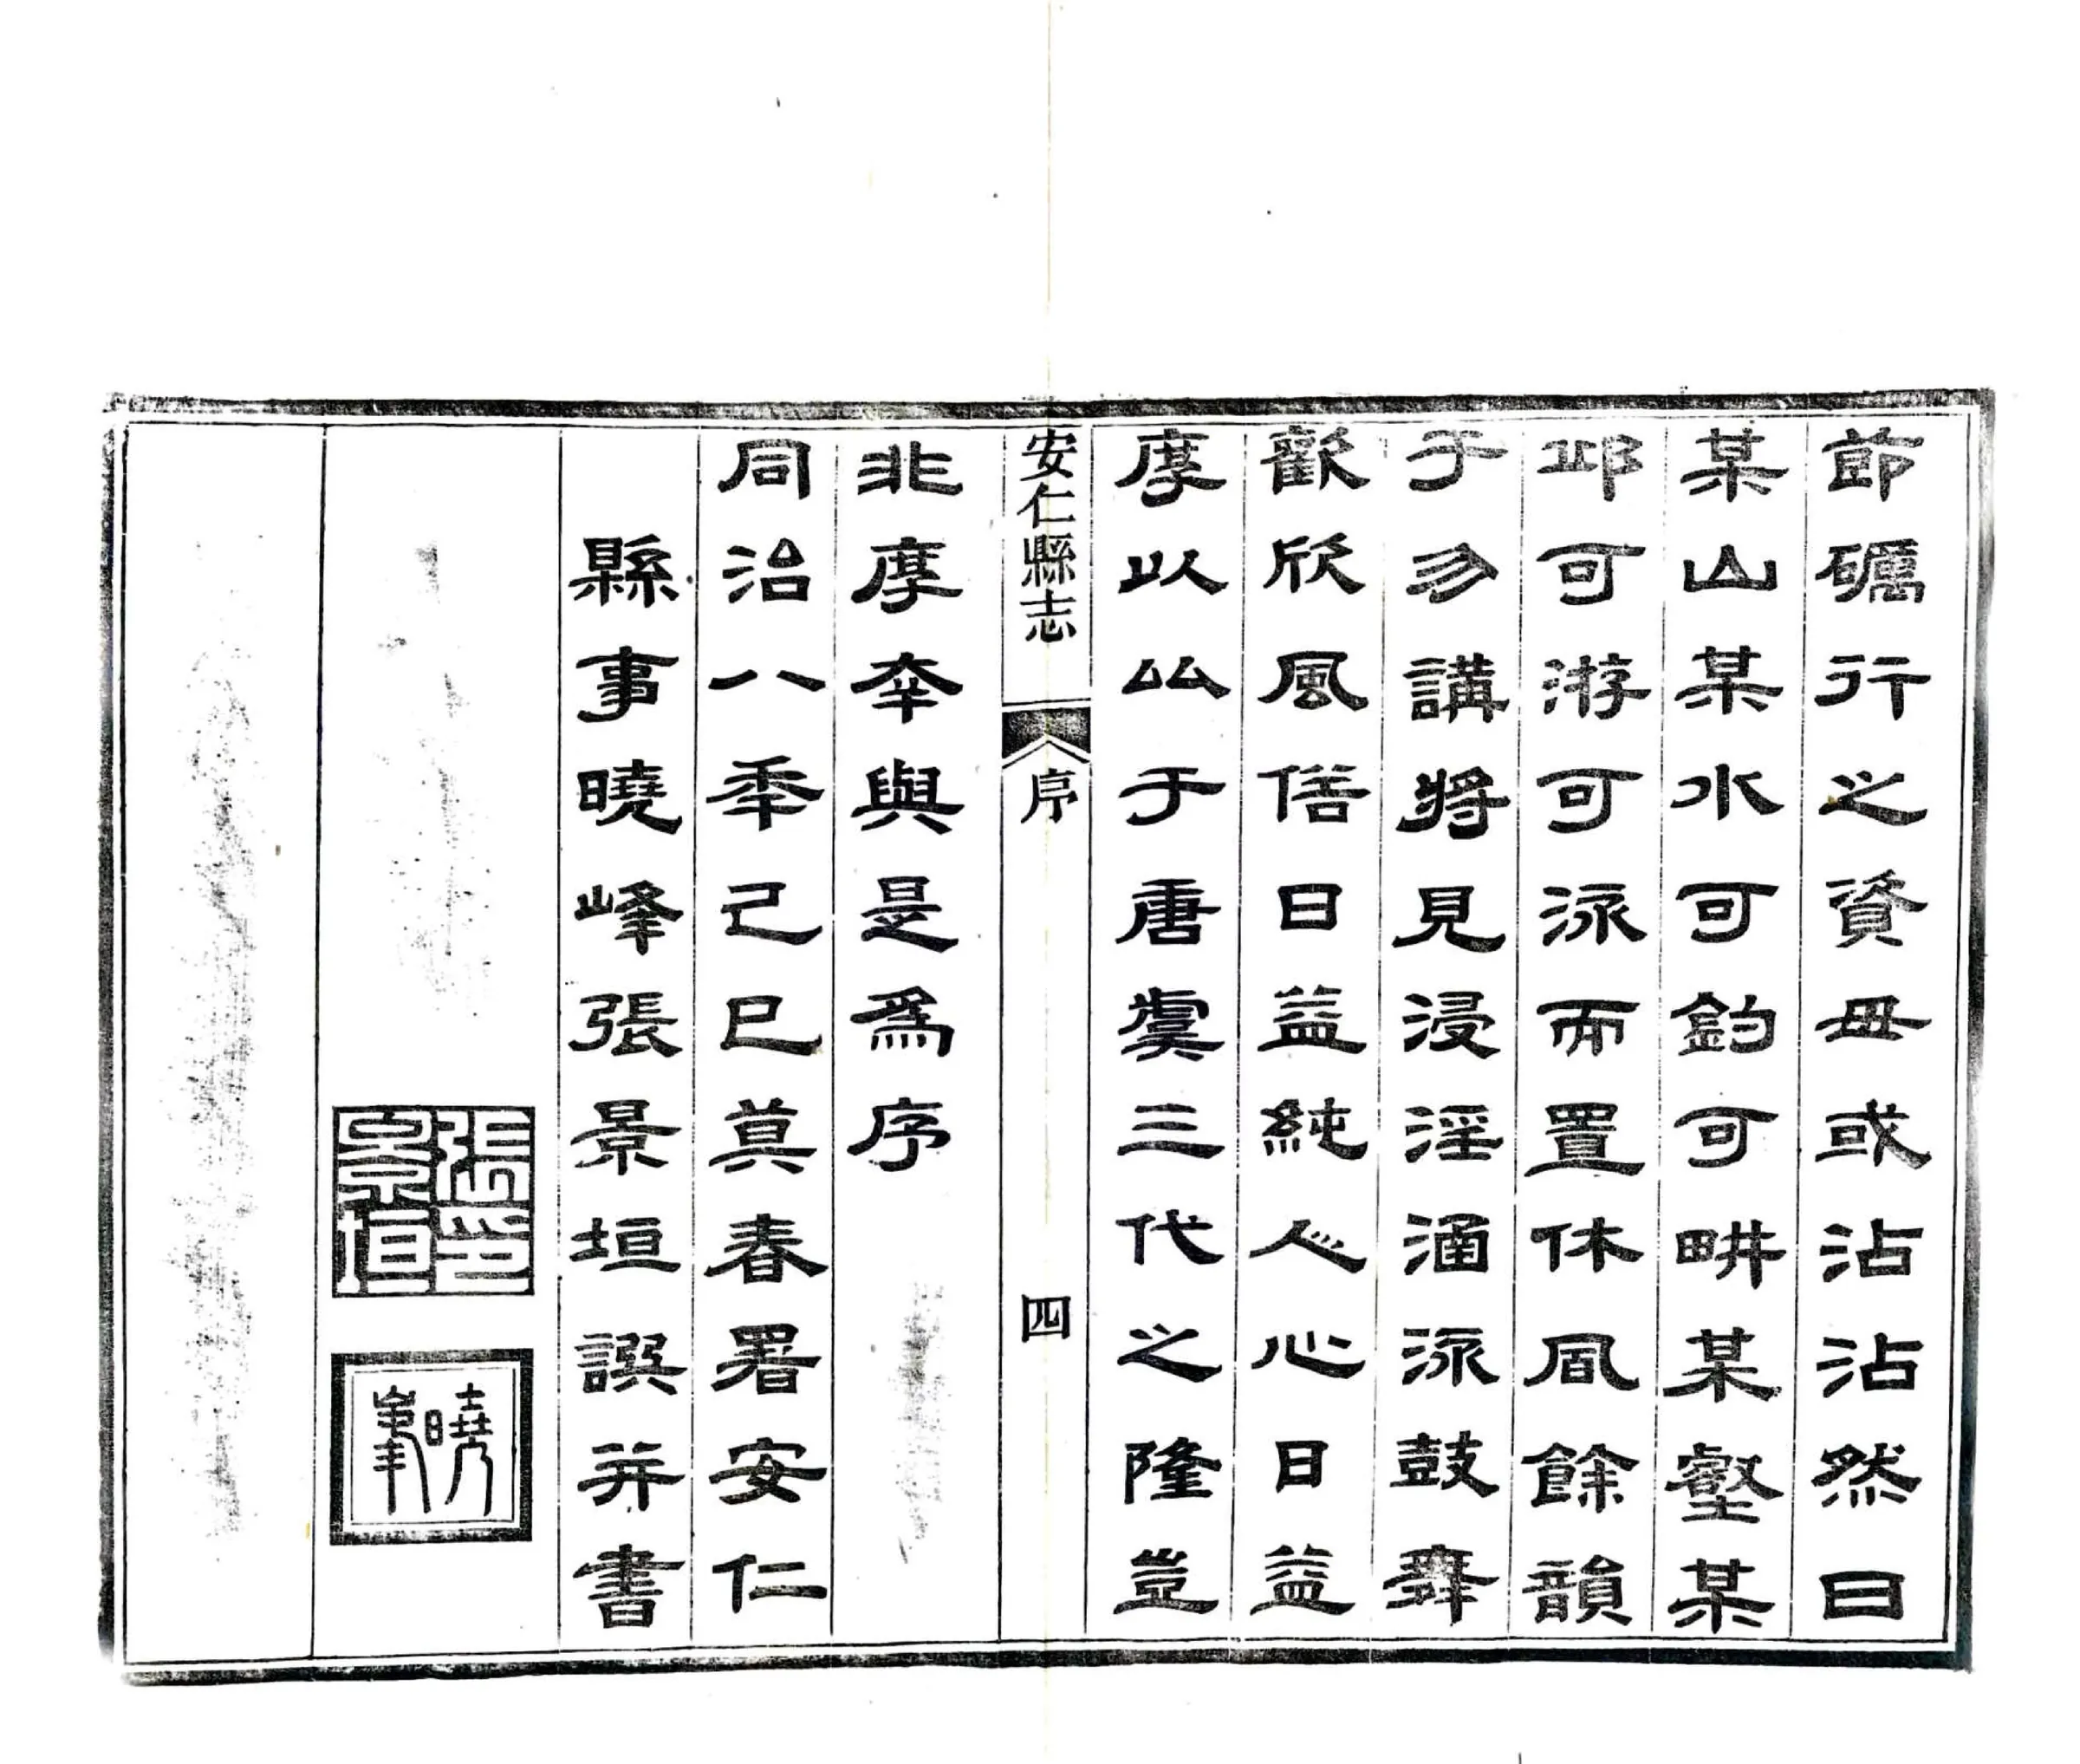 節礪行之資毋或沾沾然曰
某山某水可釣可畊某壑某
邱可游可泳而置休風餘韻
于勿講將見浸淫涵泳鼓舞
歡欣風俗日益純人心日益
厚以厸于唐虞三代之隆豈
安仁縣志
序
四
非厚幸與是爲序
同治八秊己巳莫春署安仁
縣事曉峰張景垣譔并書
張印景垣
曉峯